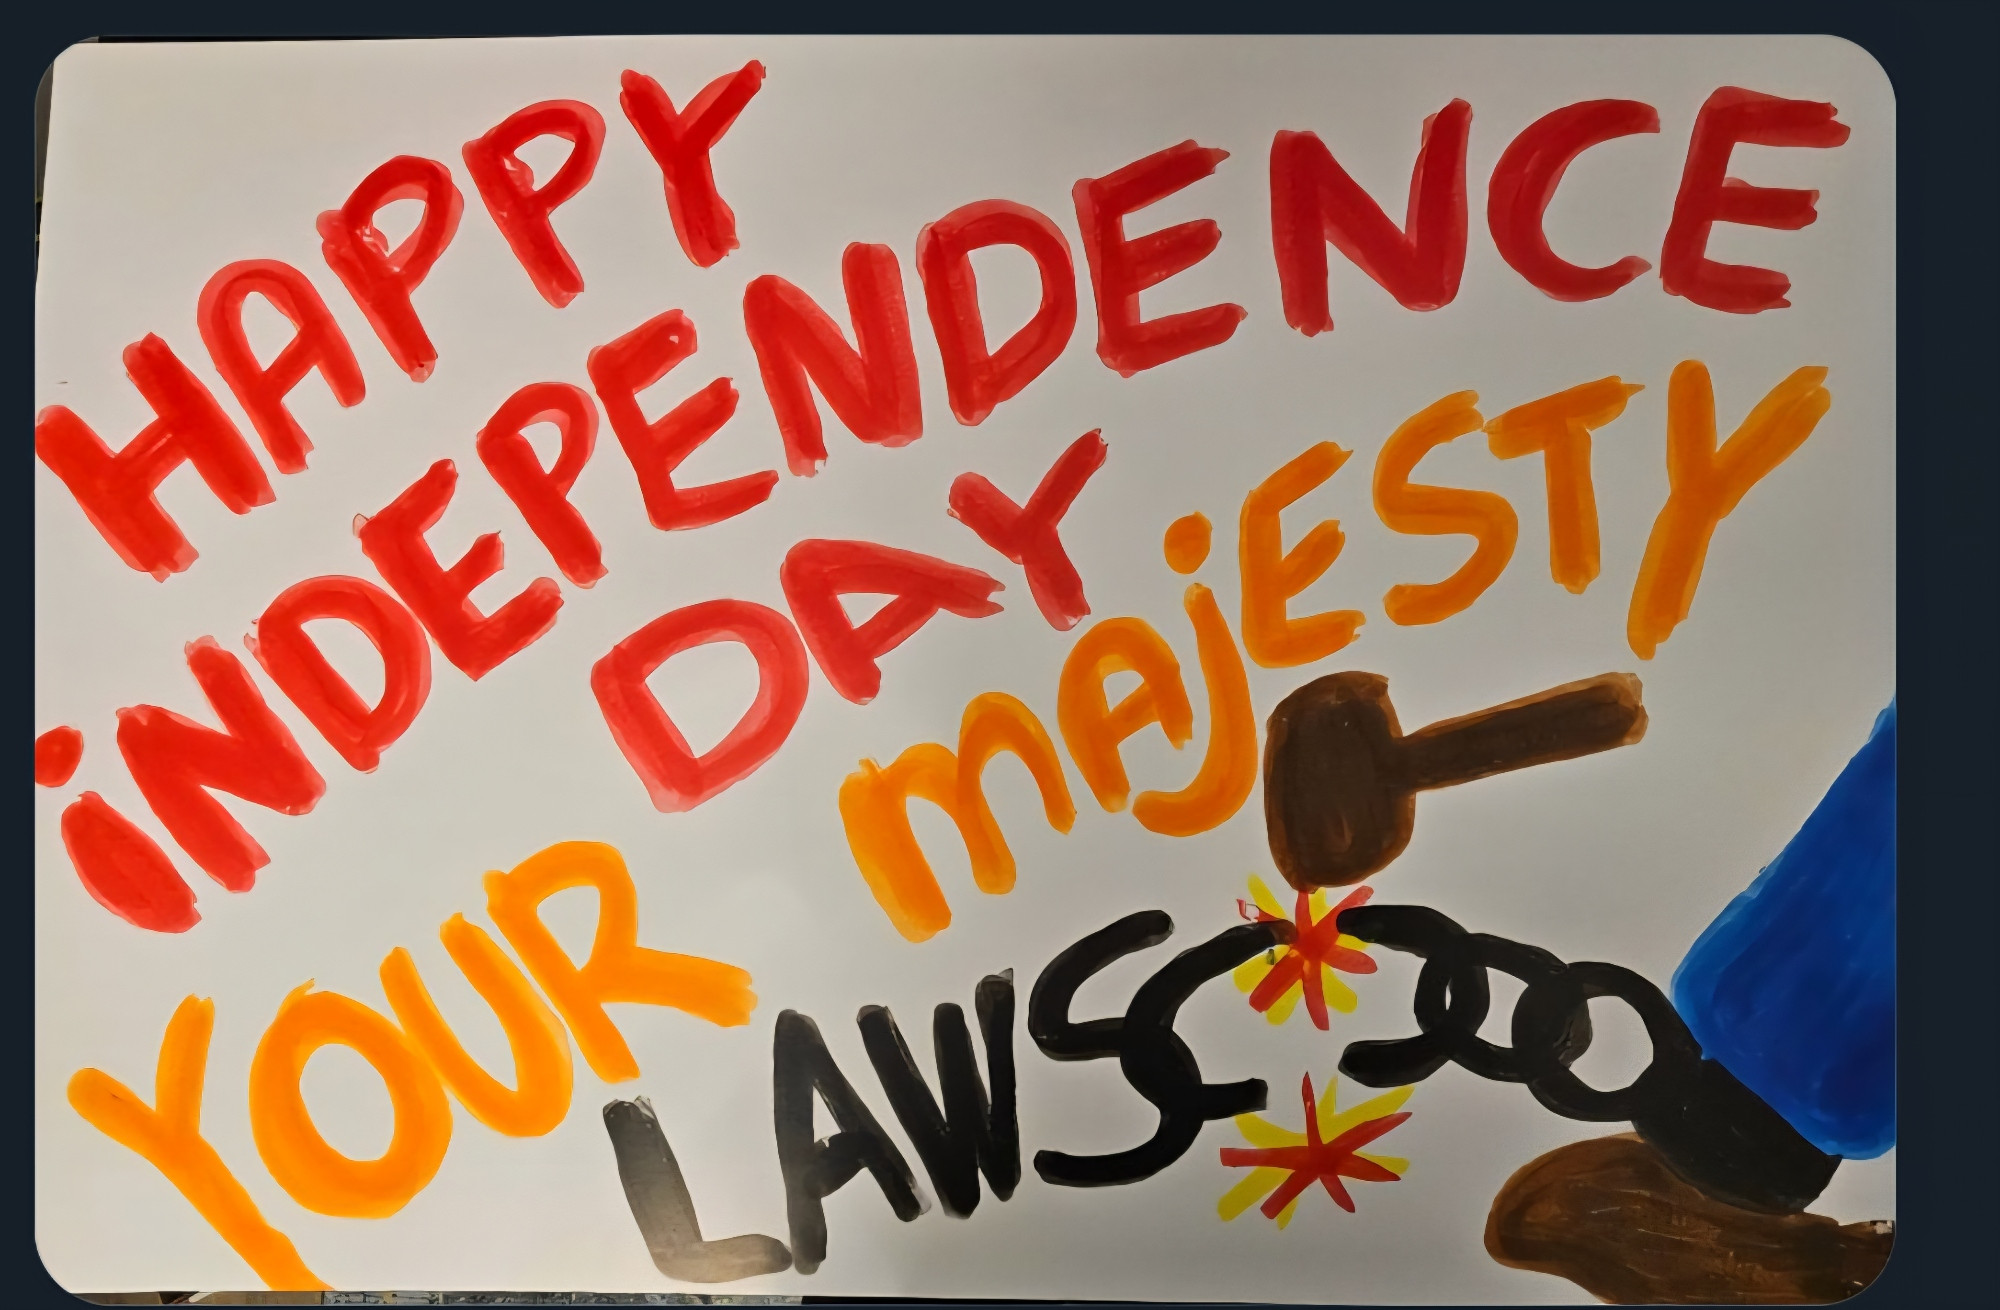 HAPPY
iNDEPENDENCE
DAY
YOUR mAjESTY
LAWS